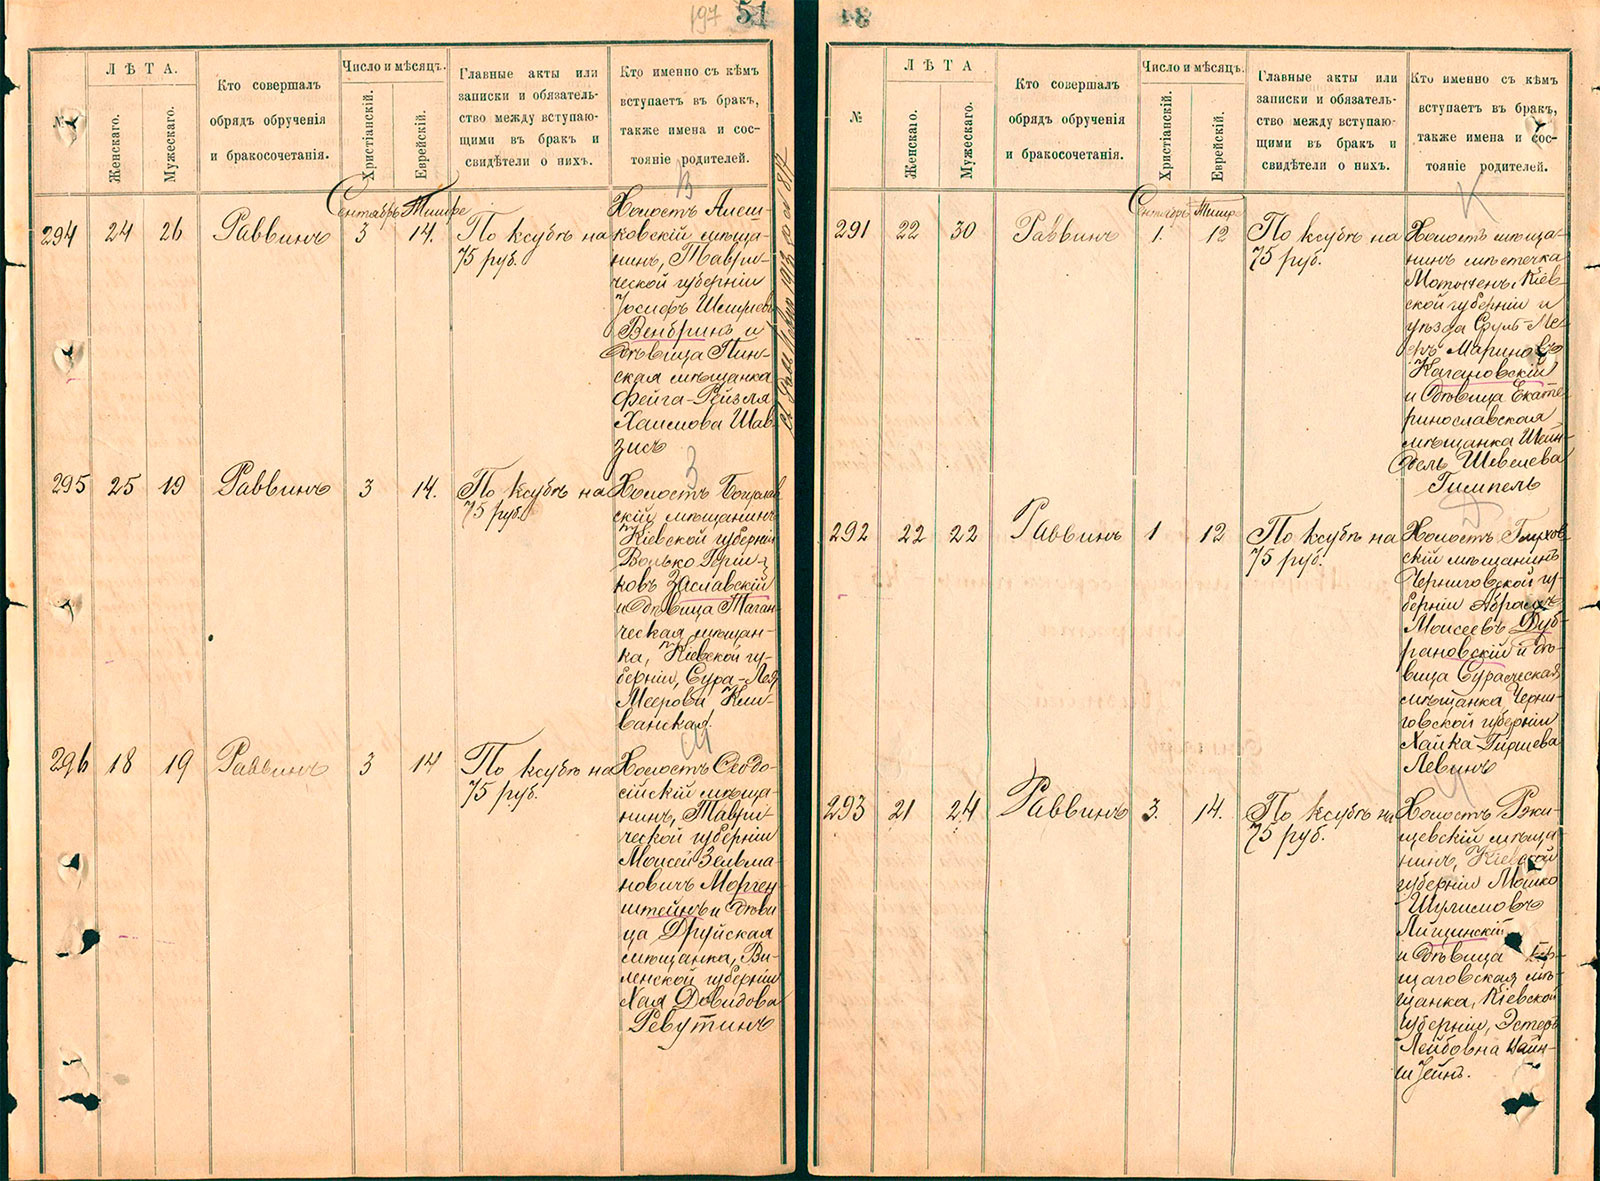 197 51
№
ЛѢТА.
Женскаго.
Мужескаго.
Кто совершалъ
обрядъ обрученія
и бракосочетанія.
Число и мѣсяцъ.
Христіанскій.
Еврейскій.
Главные акты или
записки и обязатель-
ство между вступаю-
щими въ бракъ и
свидѣтели о нихъ.
Кто именно съ кѣмъ
вступаетъ въ бракъ,
также имена и сос-
тояніе родителей.
В
Сентябрь Тишре
294 24 26 Раввинъ 3 14. По ксубѣ на
75 руб.
Холостъ Алеш-
ковскій мѣща-
нинъ, Таври-
ческой губерніи
Іосифъ Шмулевъ
Венбринъ и
дѣвица Пин-
ская мѣщанка
Фейга-Рейзля
Хаимова Шав-
зисъ
З
295 25 19 Раввинъ 3 14. По ксубѣ на
75 руб.
Холостъ Богуслав
скій мѣщанинъ
Кіевской губерніи
Волько Герш-
ковъ Заславскій
и дѣвица Таган-
ческая мѣщан-
ка, Кіевской гу-
берніи, Сура-Лея
Меерова Кли-
ванская.
М
296 18 19 Раввинъ 3 14 По ксубѣ на
75 руб.
Холостъ Ѳеодо-
сійскій мѣща-
нинъ, Таври-
ческой губерніи
Моисей Зельма-
новичъ Морген-
штейнъ и дѣви
ца Друйская
мѣщанка, Ви-
ленской губерніи
Хая Довидова
Ревутинъ
№
ЛѢТА
Женскаго.
Мужескаго.
Кто совершалъ
обрядъ обрученія
и бракосочетанія.
Число и мѣсяцъ.
Христіанскій.
Еврейскій.
Главные акты или
записки и обязатель-
ство между вступаю-
щими въ бракъ и
свидѣтели о нихъ.
Кто именно съ кѣмъ
вступаетъ въ бракъ,
также имена и сос-
тояніе родителей.
К
Сентябрь Тишре
291 22 30 Раввинъ 1. 12 По ксубѣ на
75 руб.
Холостъ мѣща-
нинъ мѣстечка
Мотыженъ, Кіев
ской губерніи и
уѣзда Сруль-Ле-
Мариновъ
Кагановскій
и дѣвица Екате-
ринославская
мѣщанка Шейн-
дель Шевелева
Гимпель
Д
292 22 22 Раввинъ 1 12 По ксубѣ на
75 руб.
Холостъ Глухов-
скій мѣщанинъ
Черниговской гу-
берніи Абрамъ
Моисеевъ Дуб-
рановскій и дѣ-
вица Суражская
мѣщанка Черни-
говской губерніи
Хайка Гиршева
Левинъ
293 21 24 Раввинъ 3. 14. По ксубѣ на
75 руб.
Холостъ Ржи-
щевскій мѣща
нинъ, Кіевской
губерніи Мошко
Шулимовъ
Лищинскій
и дѣвица
щаговская мѣ-
щанка, Кіевской
губерніи, Эстеръ
Лейбовна Вайн-
штейнъ.